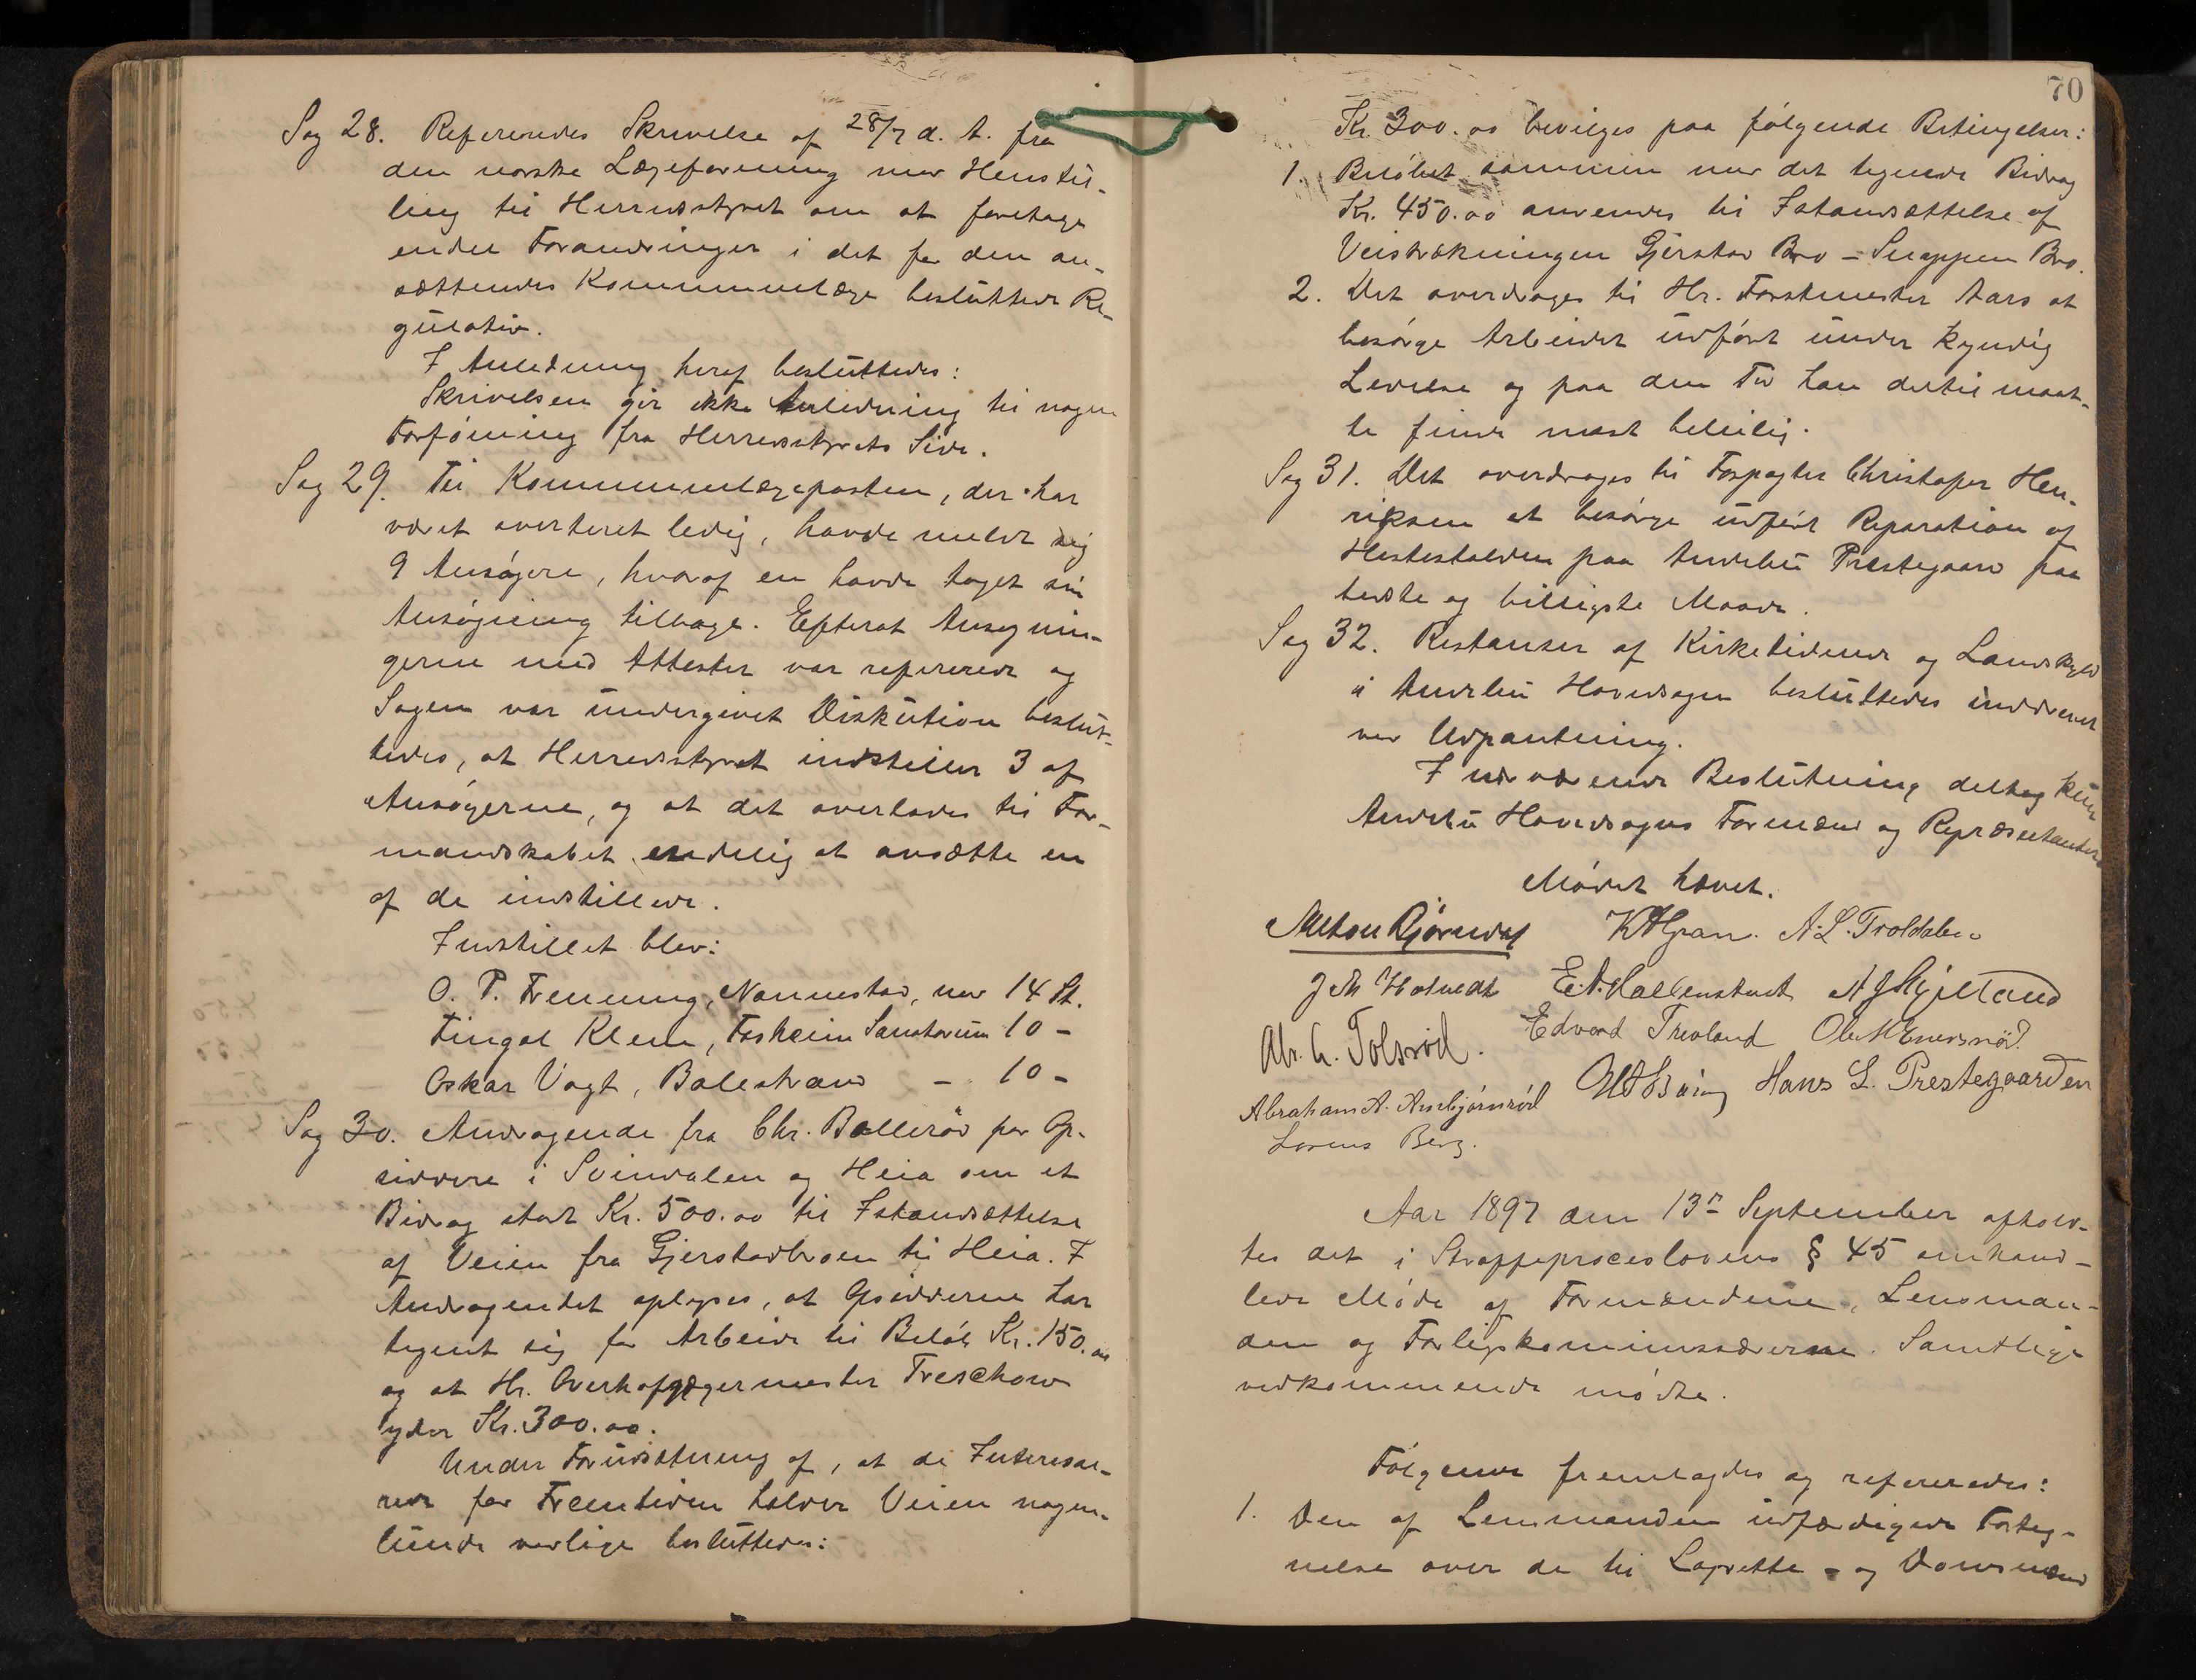 Sag 28. Refereredes Skrivelse af 28/7 d. A. fra
den norske Lægeforening med Henstil-
ling til Herredsstyret om at foretage
endel Forandringer i det for den an-
sættendes Kommunelæge besluttede Re-
gulativ.
I Anledning heraf besluttedes:
Skrivelsen gir ikke Anledning til nogen
Forføining fra Herredsstyrets Side.
Sag 29. Til Kommunelægeposten, der har
været averteret ledig, havde meldt sig
9 Ansøgere, hvoraf en havde taget sin
Ansøgning tilbage. Efterat Ansøgnin-
gerne med Attester var refereret og
Sagen var undergivet Diskution beslut-
tedes, at Herredsstyret indstiller 3 af
Ansøgerne, og at det overlades til For-
mandskabet endelig at ansætte en
af de indstillede.
Indstillet blev:
O. P. Frenning, Nannestad, med 14 St.
Fingal Klem, Fosheim Sanatorium 10 -
Oskar Vogt, Balestrand - 10 -
Sag 30. Andragende fra Chr. Bollerød for Op-
siddere i Svindalen og Heia om et
Bidrag stort Kr. 500.00 til Istandsættelse
af Veien fra Gjerstadbroen til Heia. I
Andragendet oplyses, at Opsidderne har
tegnet sig for Arbeide til Beløb Kr. 150.00
og at Hr. Overhofjægermester Treschow
yder Kr. 300.00.
Under Forudsætning af, at de Interesse-
rede for Fremtiden holder Veien nogen-
lunde varlige besluttedes:
70
Kr. 300.00 bevilges paa følgende Betingelser:
1. Beløbet sammen med det tegnede Bidrag
Kr. 450.00 anvendes til Istandsættelse af
Veistrækningen Gjerstad Bro - Snappen Bro.
2. Det overdrages til Hr. Forstmester Aars at
besørge Arbeidet udført under kyndig
Ledelse og paa den Tid han dertil maat-
te finde mest beleilig.
Sag 31. Det overdrages til Forpagter Christofer Hen-
riksen at besørge udført Reparation af
Hestestalden paa Andebu Prestegaard paa
bedste og billigste Maade.
Sag 32. Restanser af Kirketiende og Landskyld
i Andebu Hovedsogn besluttedes inddrevet
ved Udpantning.
I nærværende Beslutning deltog kun
Andebu Hovedsogns Formænd og Repræsentanter
Mødet hævet.
Anton Bjørndal K A Gran. A. L. Troldsler
J M Hotvedt E. A. Møllenstuet A J Gjelland
Abr. A. Tolsrød. Edvard Trevland Ole M Enersrød.
Abraham A. Anbjørnrød Hans L. Prestegaarden
Lorens Berg.
Aar 1897 den 13de September afhold-
tes det i Straffeproceslovens § 45 omhand-
lede Møde af Formændene, Lensman-
den og Forligskommissærerne. Samtlige
vedkommende mødte.
Følgende fremlagdes og refereredes:
1. Den af Lensmanden udfærdigede Forteg-
nelse over de til Lagrette- og Domsmænd